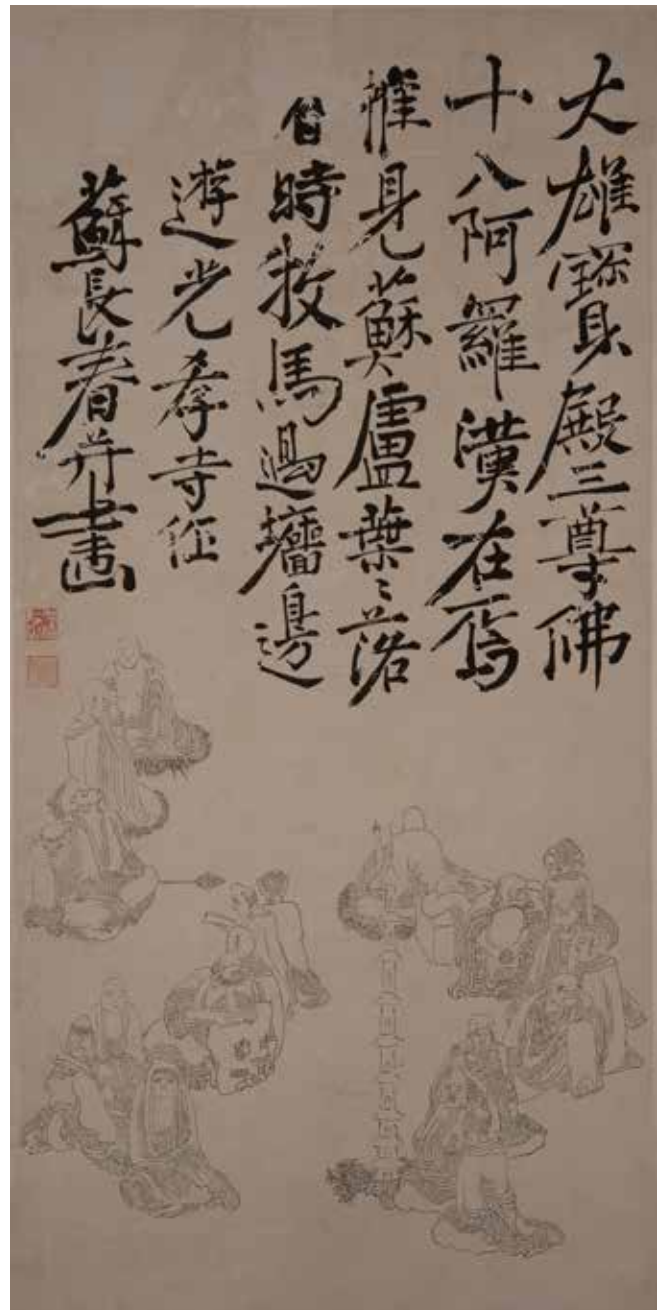 大雄寶殿三尊佛
十八阿羅漢在焉
惟見盧葉〻落
時牧馬過墻邊
遊光孝寺作
蘇長春并畫